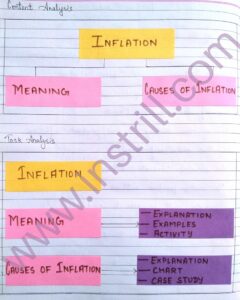 Content Analysis
INFLATION
MEANING
CAUSES OF INFLATION
Task Analysis
INFLATION
MEANING
— EXPLANATION
— EXAMPLES
— ACTIVITY
CAUSES OF INFLATION
— EXPLANATION
— CHART
— CASE STUDY
www.instrill.com